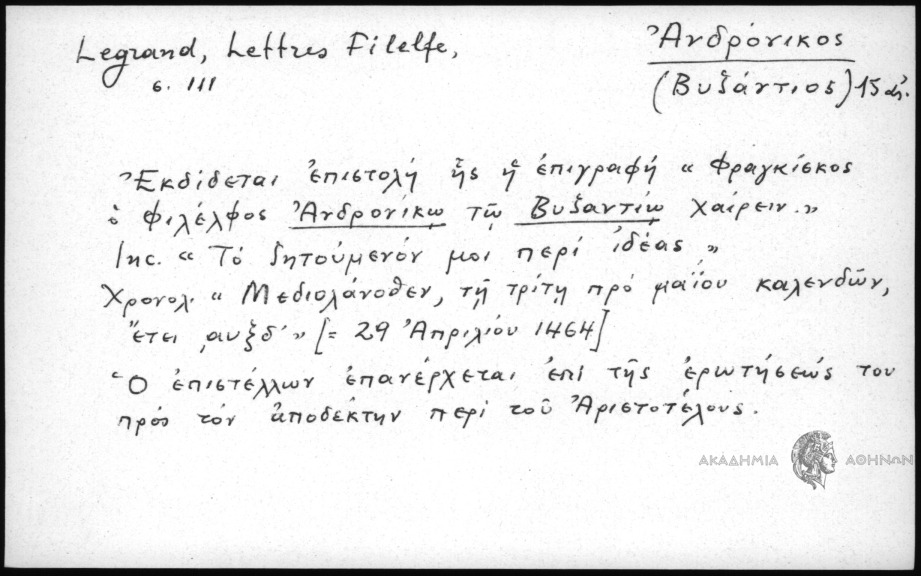 Legrand, Lettres Filelfe,
σ. 111
Ἀνδρόνικος
(Βυζάντιος) 15 αἰ.
Ἐκδίδεται ἐπιστολή ἧς ἡ ἐπιγραφή « Φραγκίσκος
ὁ Φιλέλφος Ἀνδρονίκῳ τῷ Βυζαντίῳ χαίρειν.»
Inc. « Τό ζητούμενόν μοι περί ἰδέας »
Χρονολ. « Μεδιολάνοθεν, τῇ τρίτῃ πρό μαΐου καλενδῶν,
ἔτει ͵αυξδ´ » [= 29 Ἀπριλίου 1464]
Ὁ ἐπιστέλλων ἐπανέρχεται ἐπί τῆς ἐρωτήσεώς του
πρός τόν ἀποδέκτην περί τοῦ Ἀριστοτέλους.
ΑΚΑΔΗΜΙΑ ΑΘΗΝΩΝ